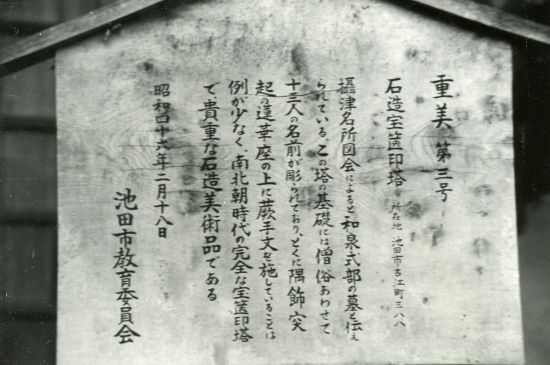 重美第三号
石造宝篋印塔 所在地 池田市古江町三八八
摂津名所図会によると和泉式部の墓と伝え
られている、この塔の基礎には僧俗あわせて
十三人の名前が彫られており、とくに隅飾突
起の蓮華座の上に蕨手文を施していることは
例が少なく、南北朝時代の完全な宝篋印塔
で貴重な石造美術品である
昭和四十六年二月十八日
池田市教育委員会